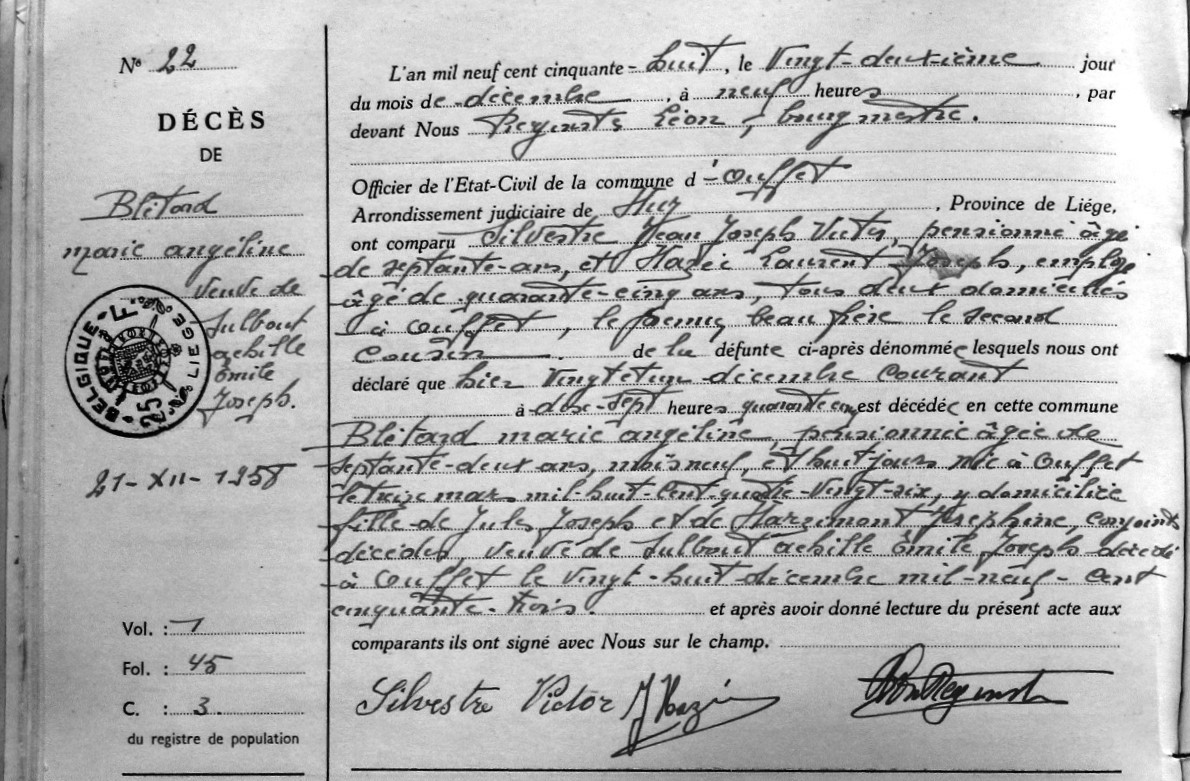 Nº 22
DÉCÈS
DE
Blétard
marie angéline
veuve de
Julbout
achille
Émile
Joseph.
BELGIQUE - F
LIEGE
25
21-XII-1958
Vol. : 1
Fol. : 45
C. : 3.
du registre de population
L'an mil neuf cent cinquante-huit, le Vingt-deuxième jour
du mois de décembre, à neuf heures, par
devant Nous Léon, bourgmestre.
Officier de l'Etat-Civil de la commune d'Ouffet
Arrondissement judiciaire de Huy, Province de Liége,
ont comparu Silvestre Jean Joseph Victor, pensionné âgé
de septante-ans, et Hazée Laurent Joseph, employé
âgé de quarante-cinq ans, tous deux domiciliés
à Ouffet, le premier beau frère le second
Cousin de la défunte ci-après dénommée lesquels nous ont
déclaré que hier Vingt et un décembre courant
à dix-sept heures quarante cinq est décédée en cette commune
Blétard marie angéline, pensionnée âgée de
septante-deux ans, mois neuf, et huit jours née à Ouffet
le treize mars mil-huit-cent-quatre-vingt-six, y domiciliée
fille de Jules Joseph et de Hargimont Josephine, conjoints
décédés, veuve de Julbout achille Émile Joseph décédé
à Ouffet le vingt-huit décembre mil-neuf-cent
cinquante-trois. et après avoir donné lecture du présent acte aux
comparants ils ont signé avec Nous sur le champ.
Silvestre Victor